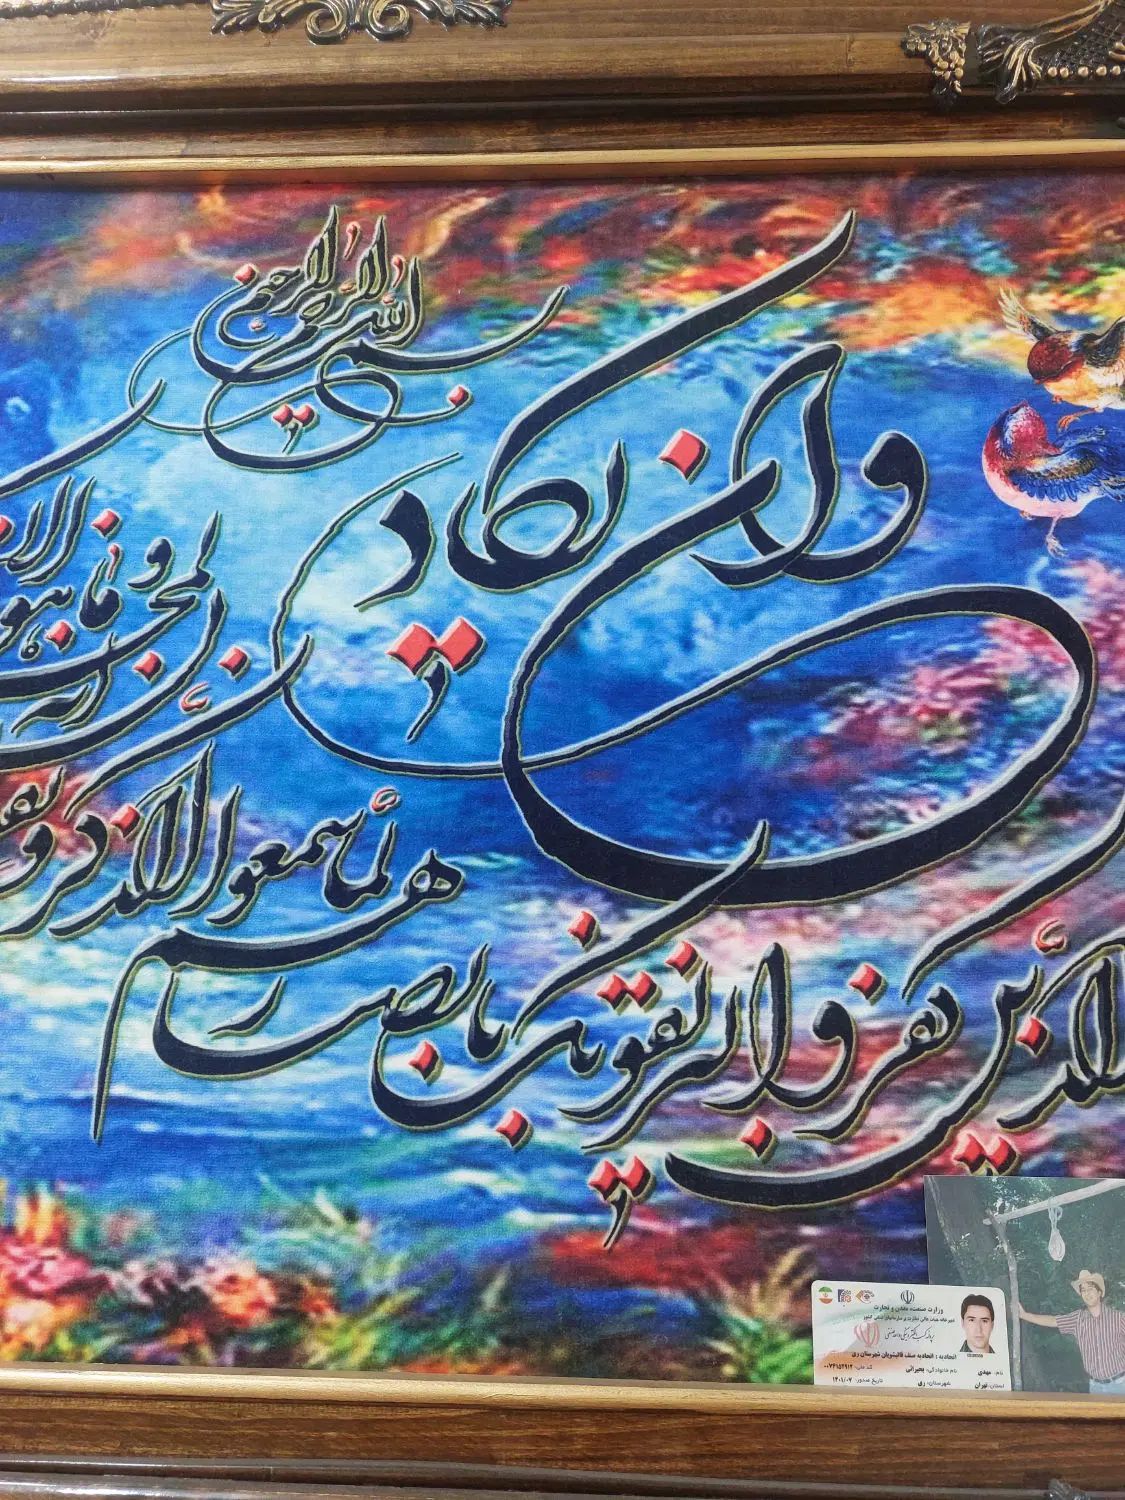 بسم الله الرحمن الرحیم
وان یکاد
الذین کفروا لیزلقونک بابصارهم
لما سمعوا الذکر و یقو
انه لمجنون
و ما هو الا ذ
وزارت صنعت، معدن و تجارت
دبیرخانه هیات عالی نظارت بر سازمانهای صنفی کشور
اتحادیه : اتحادیه صنف قالیشویان شهرستان ری
نام: مهدی
نام خانوادگی: بحیرائی
کد ملی: ۰۰۷۴۱۵۲۹۱۲
استان: تهران
شهرستان: ری
تاریخ صدور: ۱۴۰۱/۰۷